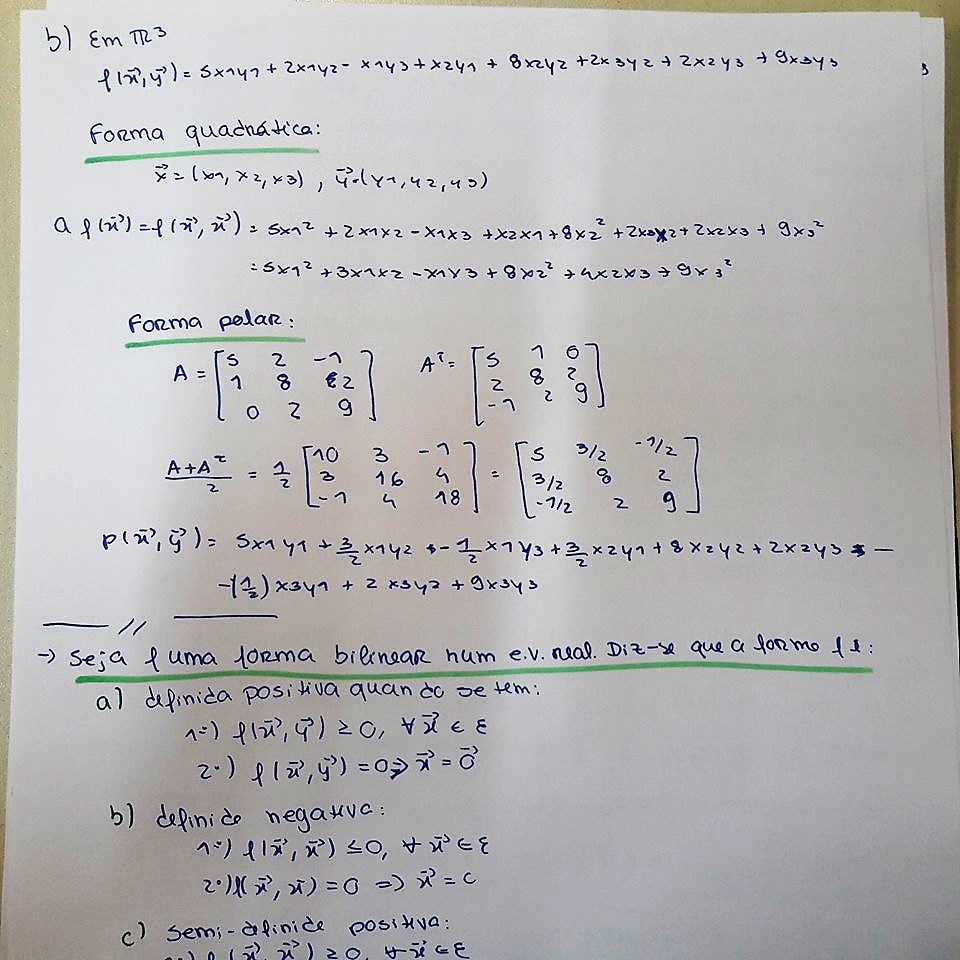 b) Em ℝ3
f(x⃗,y⃗) = 5x1y1 + 2x1y2 - x1y3 + x2y1 + 8x2y2 + 2x3y2 + 2x2y3 + 9x3y3
Forma quadrática:
x⃗ = (x1, x2, x3) , y⃗ = (y1, y2, y3)
a f(x⃗) = f(x⃗, x⃗) = 5x1² + 2x1x2 - x1x3 + x2x1 + 8x2² + 2x3x2 + 2x2x3 + 9x3²
= 5x1² + 3x1x2 - x1x3 + 8x2² + 4x2x3 + 9x3²
Forma polar:
A = [5 2 -1   Aᵀ = [5 1 0
1 8 2   2 8 2
0 2 9]   -1 2 9]
(A+Aᵀ)/2 = 1/2 [10 3 -1 = [5 3/2 -1/2
3 16 4   3/2 8 2
-1 4 18]   -1/2 2 9]
p(x⃗, y⃗) = 5x1y1 + 3/2 x1y2 - 1/2 x1y3 + 3/2 x2y1 + 8x2y2 + 2x2y3 -
-(1/2) x3y1 + 2x3y2 + 9x3y3
//
→ Seja f uma forma bilinear num e.v. real. Diz-se que a forma f é:
a) definida positiva quando se tem:
1º) f(x⃗, y⃗) ≥ 0, ∀ x⃗ ∈ E
2º) f(x⃗, y⃗) = 0 ⇒ x⃗ = 0⃗
b) definida negativa:
1º) f(x⃗, x⃗) ≤ 0, ∀ x⃗ ∈ E
2º) f(x⃗, x⃗) = 0 ⇒ x⃗ = 0
c) semi-definida positiva:
1º) f(x⃗, x⃗) ≥ 0, ∀ x⃗ ∈ E